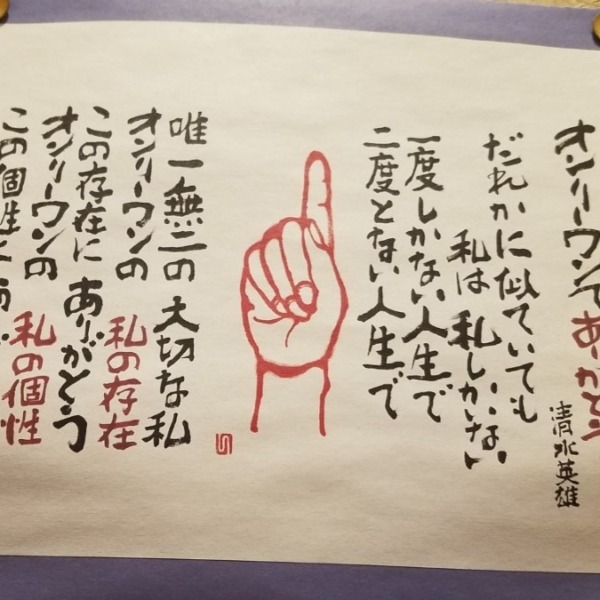 オンリーワンでありがとう
清水英雄
だれかに似ていても
私は私しかいない
一度しかない人生で
二度とない人生で
唯一無二の大切な私
オンリーワンの私の存在
この存在にありがとう
オンリーワンの私の個性
この個性に